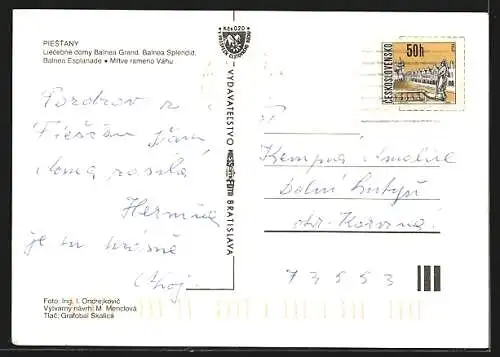 PIEŠŤANY
Liečebné domy Balnea Grand, Balnea Splendid,
Balnea Esplanade • Mŕtve rameno Váhu
Kčs 0,20
ČESKOSLOVENSKO
50h
Pozdrav z
Piešťan Vám
doma posílá
Hermína
je tu krásně
Ahoj
VYDAVATEĽSTVO
BRATISLAVA
Kempná Amálie
Dolní Lutyň
okr. Karviná
73553
Foto: Ing. I. Ondrejkovič
Výtvarný návrh: M. Menclová
Tlač: Grafobal Skalica